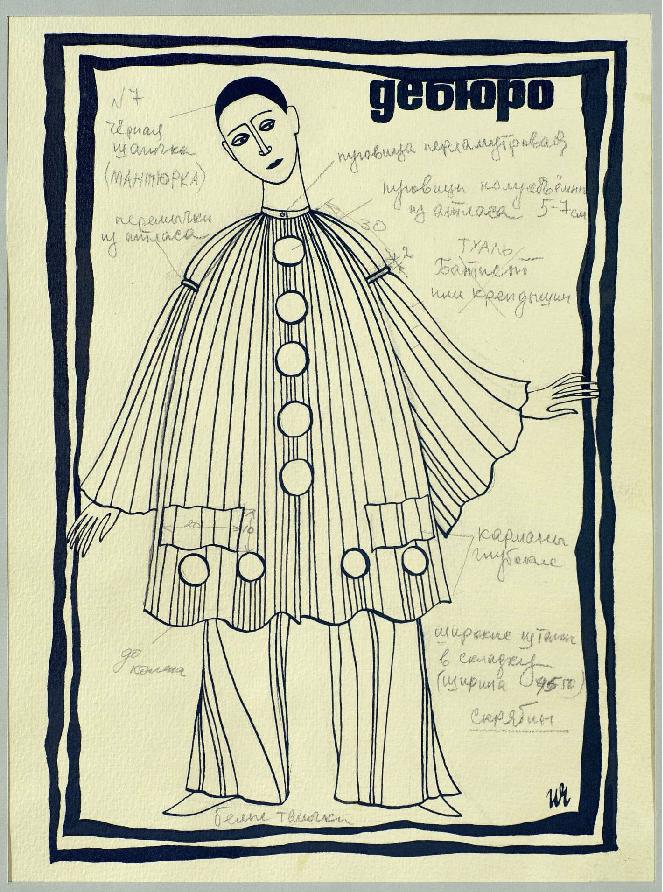 дебюро
№7
чёрная
шапочка
(МАНТЮРКА)
пуговица перламутровая
пуговицы полуобъёмн
из атласа 5-7см
30
перемычки
из атласа
×2
ТУАЛЬ
Батист
или крепдышин
20
10
карманы
глубокие
до
колена
широкие штаны
в складку
(ширина
СКРЯБИН
белые тапочки
ИЧ